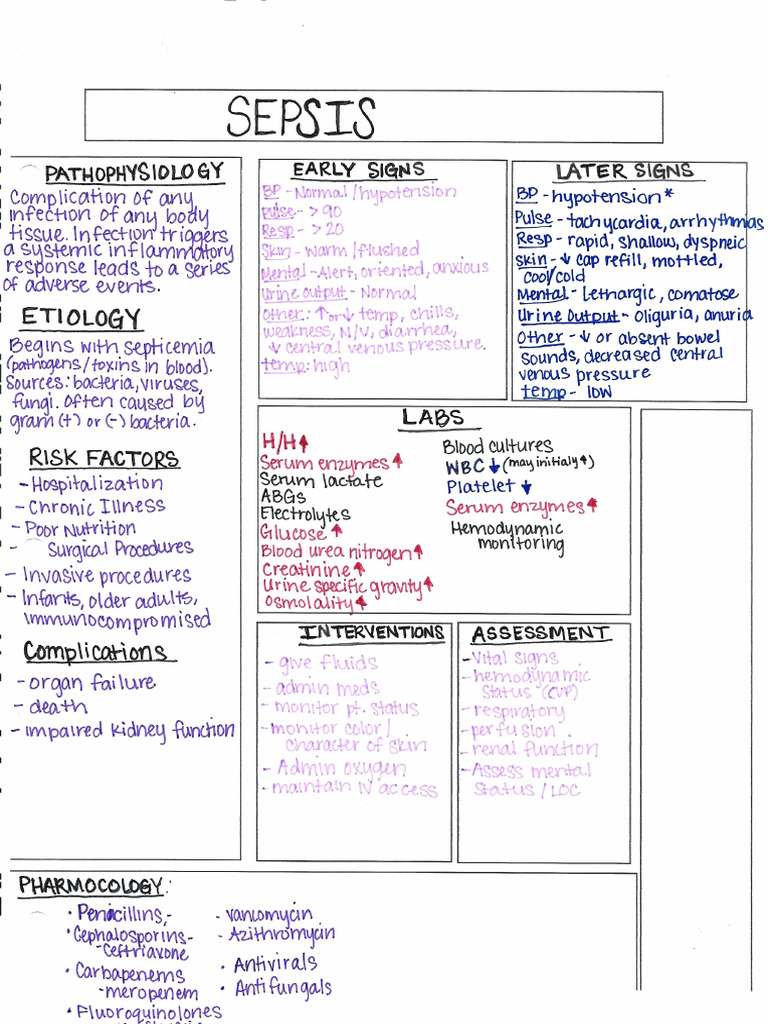 SEPSIS
PATHOPHYSIOLOGY
Complication of any
infection of any body
tissue. Infection triggers
a systemic inflammatory
response leads to a series
of adverse events.
ETIOLOGY
Begins with septicemia
(pathogens/toxins in blood).
Sources: bacteria, viruses,
fungi. Often caused by
gram (+) or (-) bacteria.
RISK FACTORS
- Hospitalization
- Chronic Illness
- Poor Nutrition
- Surgical Procedures
- Invasive procedures
- Infants, older adults,
immunocompromised
Complications
- organ failure
- death
- impaired kidney function
EARLY SIGNS
BP - Normal/hypotension
Pulse - > 90
Resp - > 20
Skin - warm/flushed
Mental - Alert, oriented, anxious
Urine output - Normal
Other: ↑ or ↓ temp, chills,
weakness, N/V, diarrhea,
↓ central venous pressure.
temp: high
LATER SIGNS
BP - hypotension*
Pulse - tachycardia, arrhythmias
Resp - rapid, shallow, dyspneic
Skin - ↓ cap refill, mottled,
cool/cold
Mental - Lethargic, comatose
Urine Output - oliguria, anuria
Other - ↓ or absent bowel
sounds, decreased central
venous pressure
temp - low
LABS
H/H ↑
Serum enzymes ↑
Serum lactate
ABGs
Electrolytes
Glucose ↑
Blood urea nitrogen ↑
Creatinine ↑
Urine specific gravity ↑
Osmolality ↑
Blood cultures
WBC ↓ (may initialy ↑)
Platelet ↓
Serum enzymes ↑
Hemodynamic
monitoring
INTERVENTIONS
- give fluids
- admin meds
- monitor pt. status
- monitor color/
character of skin
- Admin oxygen
- maintain IV access
ASSESSMENT
- Vital signs
- hemodynamic
status (CVP)
- respiratory
- perfusion
- renal function
- Assess mental
status/LOC
PHARMOCOLOGY:
· Penicillins,-
· Cephalosporins-
-Ceftriaxone
· Carbapenems
-meropenem
· Fluoroquinolones
- vancomycin
- Azithromycin
· Antivirals
· Antifungals